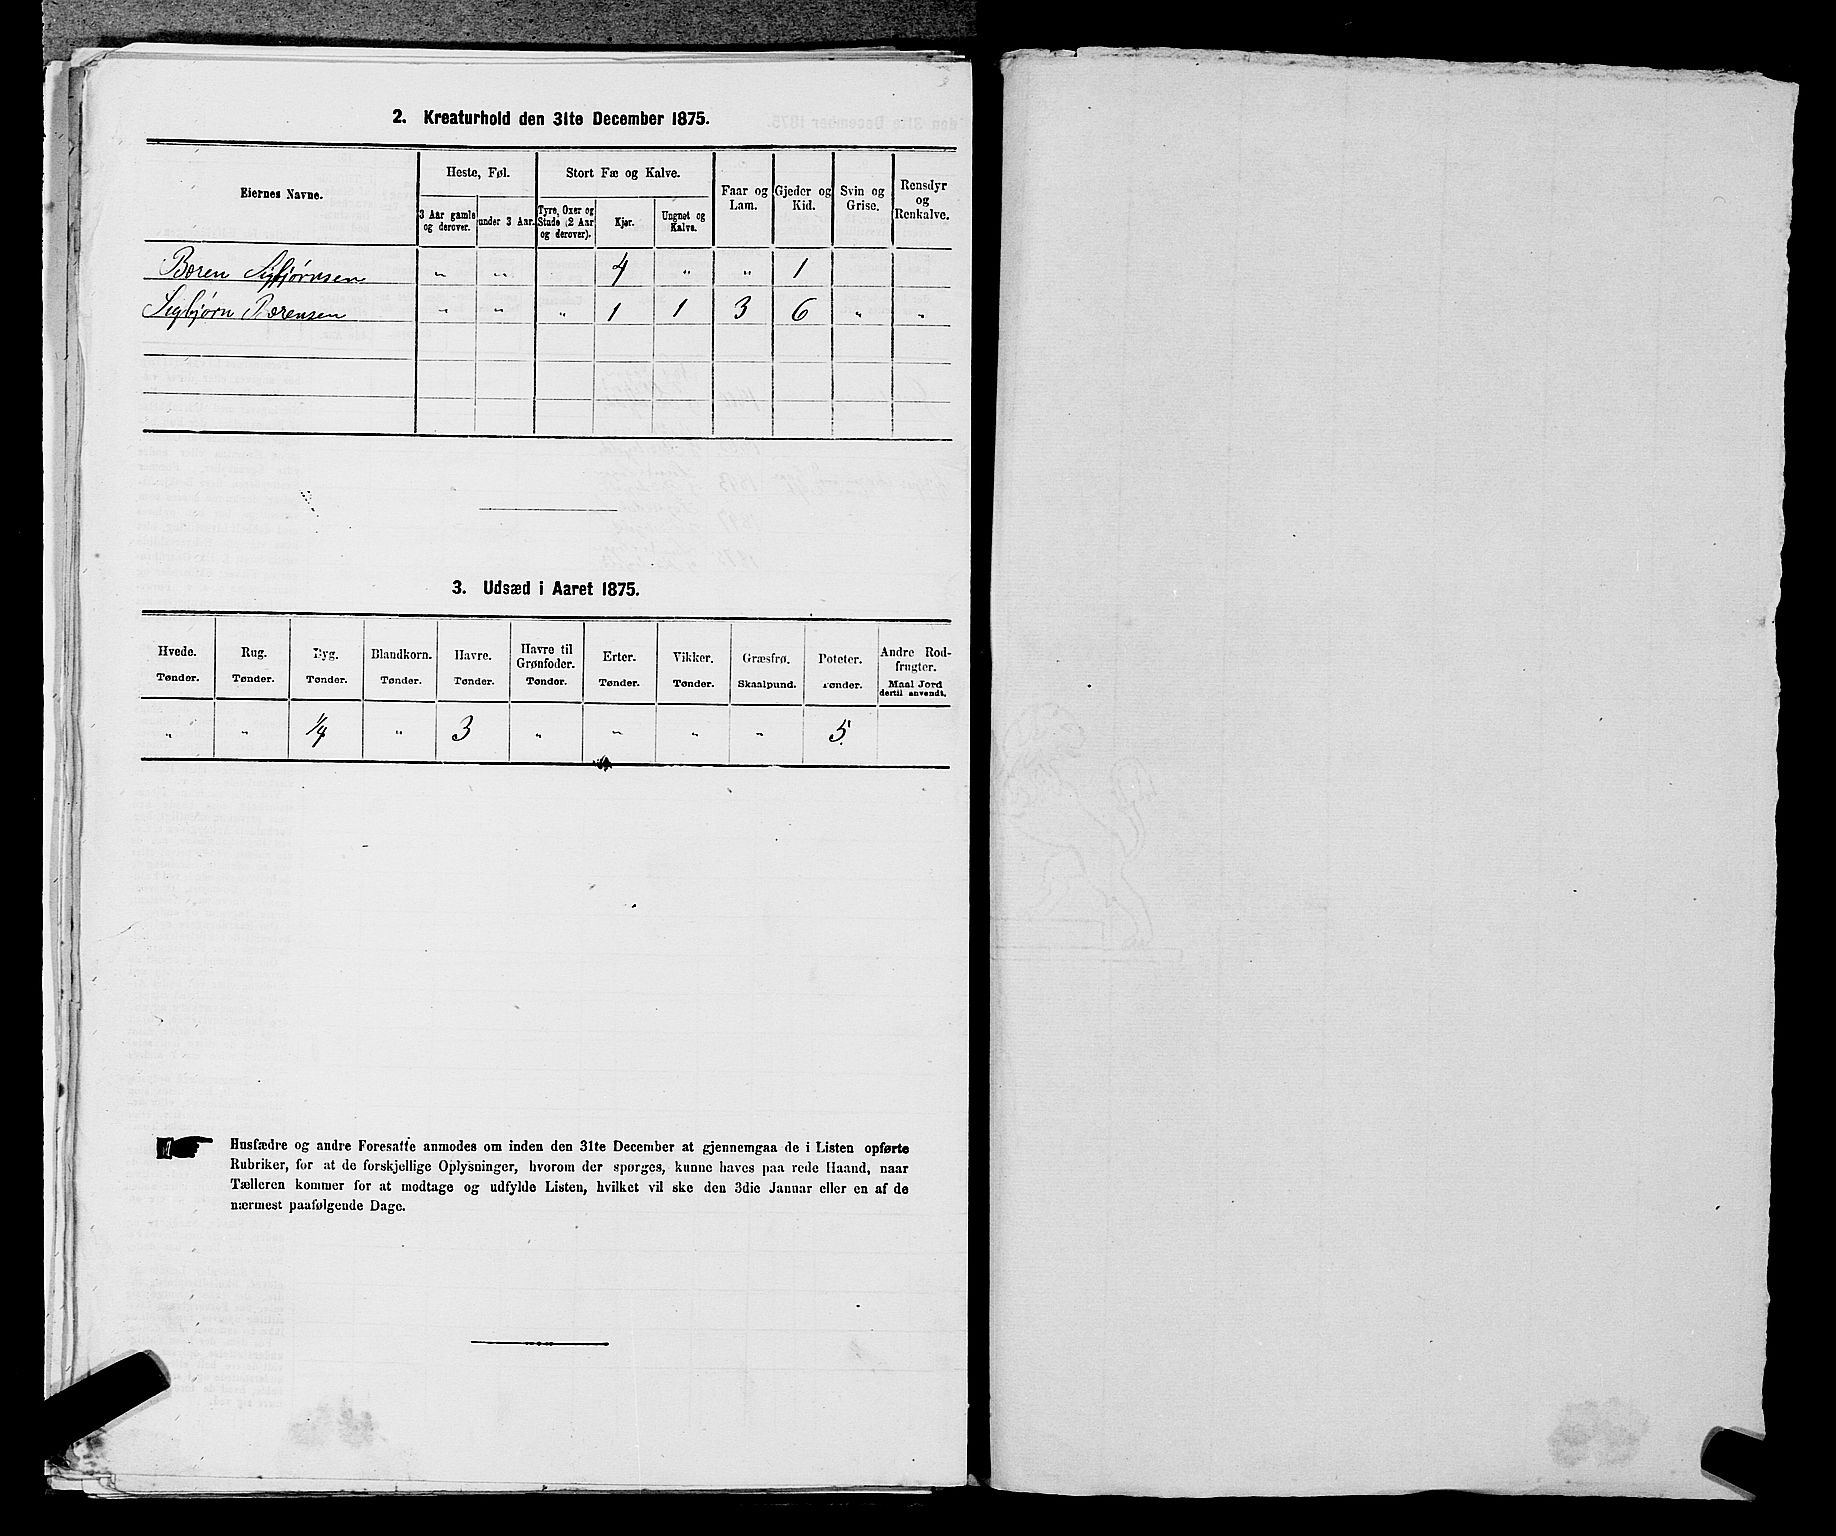 2. Kreaturhold den 31te December 1875.
Eiernes Navne.
Heste, Føl.
Stort Fæ og Kalve.
Faar og Lam.
Gjeder og Kid.
Svin og Grise.
Rensdyr og Renkalve.
3 Aar gamle og derover.
under 3 Aar.
Tyre, Oxer og Stude (2 Aar og derover).
Kjør.
Ungnøt og Kalve.
Boren Sigbjørnsen " " 4 " " 1
Sigbjørn Borensen " " " 1 1 3 6 " "
3. Udsæd i Aaret 1875.
Hvede. Rug. Byg. Blandkorn. Havre. Havre til Grønfoder. Erter. Vikker. Græsfrø. Poteter. Andre Rodfrugter.
Tønder. Tønder. Tønder. Tønder. Tønder. Tønder. Tønder. Tønder. Skaalpund. Tønder. Maal Jord dertil anvendt.
" " 1/4 " 3 " " " " 5
Husfædre og andre Foresatte anmodes om inden den 31te December at gjennemgaa de i Listen opførte
Rubriker, for at de forskjellige Oplysninger, hvorom der spørges, kunne haves paa rede Haand, naar
Tælleren kommer for at modtage og udfylde Listen, hvilket vil ske den 3die Januar eller en af de
nærmest paafølgende Dage.